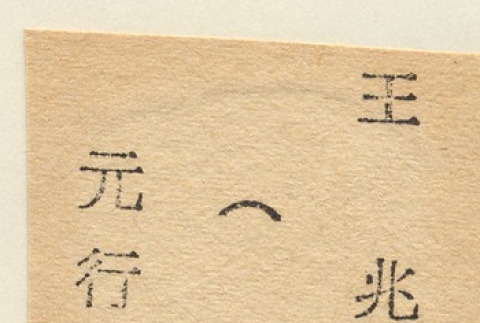 王兆
︵
元行